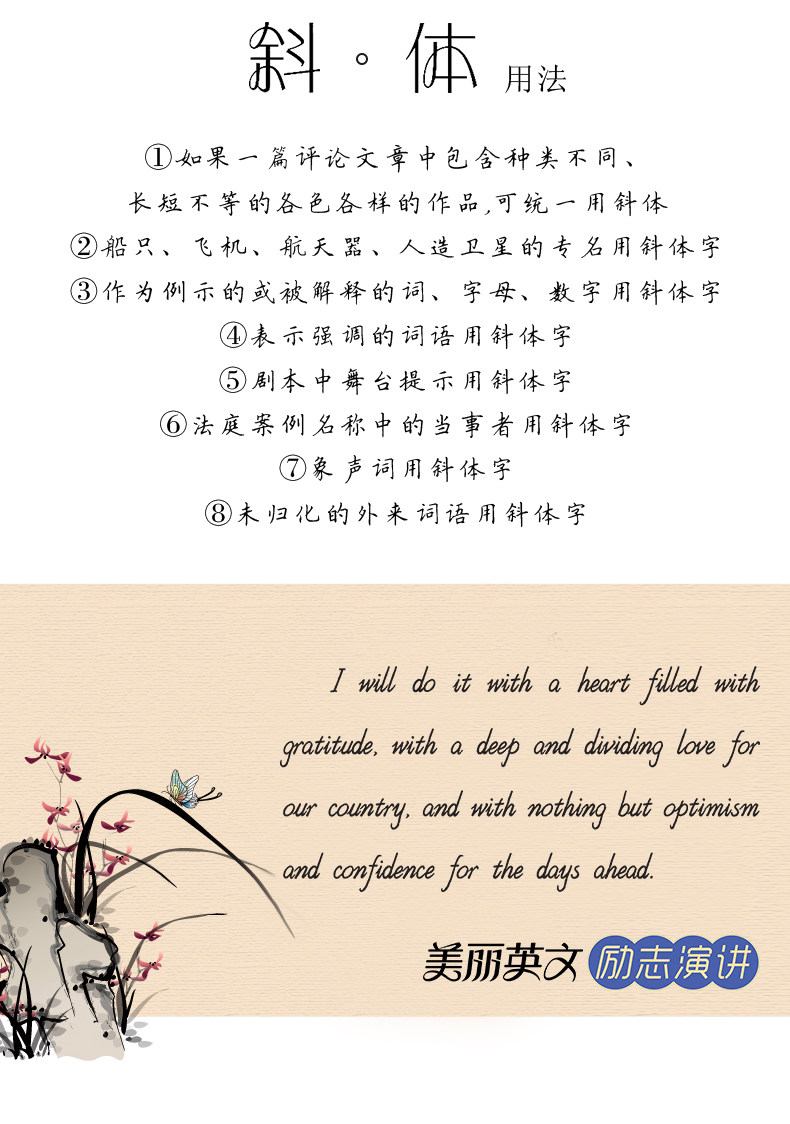 斜·体 用法
①如果一篇评论文章中包含种类不同、
长短不等的各色各样的作品,可统一用斜体
②船只、飞机、航天器、人造卫星的专名用斜体字
③作为例示的或被解释的词、字母、数字用斜体字
④表示强调的词语用斜体字
⑤剧本中舞台提示用斜体字
⑥法庭案例名称中的当事者用斜体字
⑦象声词用斜体字
⑧未归化的外来词语用斜体字
I will do it with a heart filled with
gratitude, with a deep and dividing love for
our country, and with nothing but optimism
and confidence for the days ahead.
美丽英文 励志演讲